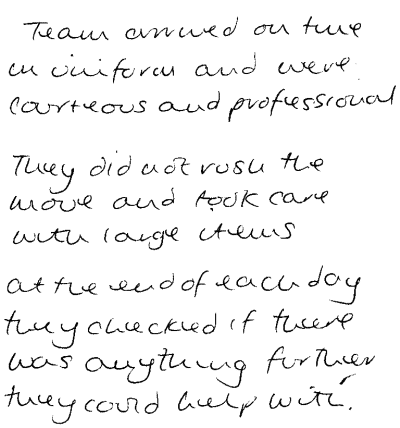 Team arrived on time
in uniform and were
courteous and professional
They did not rush the
move and took care
with large items
at the end of each day
they checked if there
was anything further
they could help with.